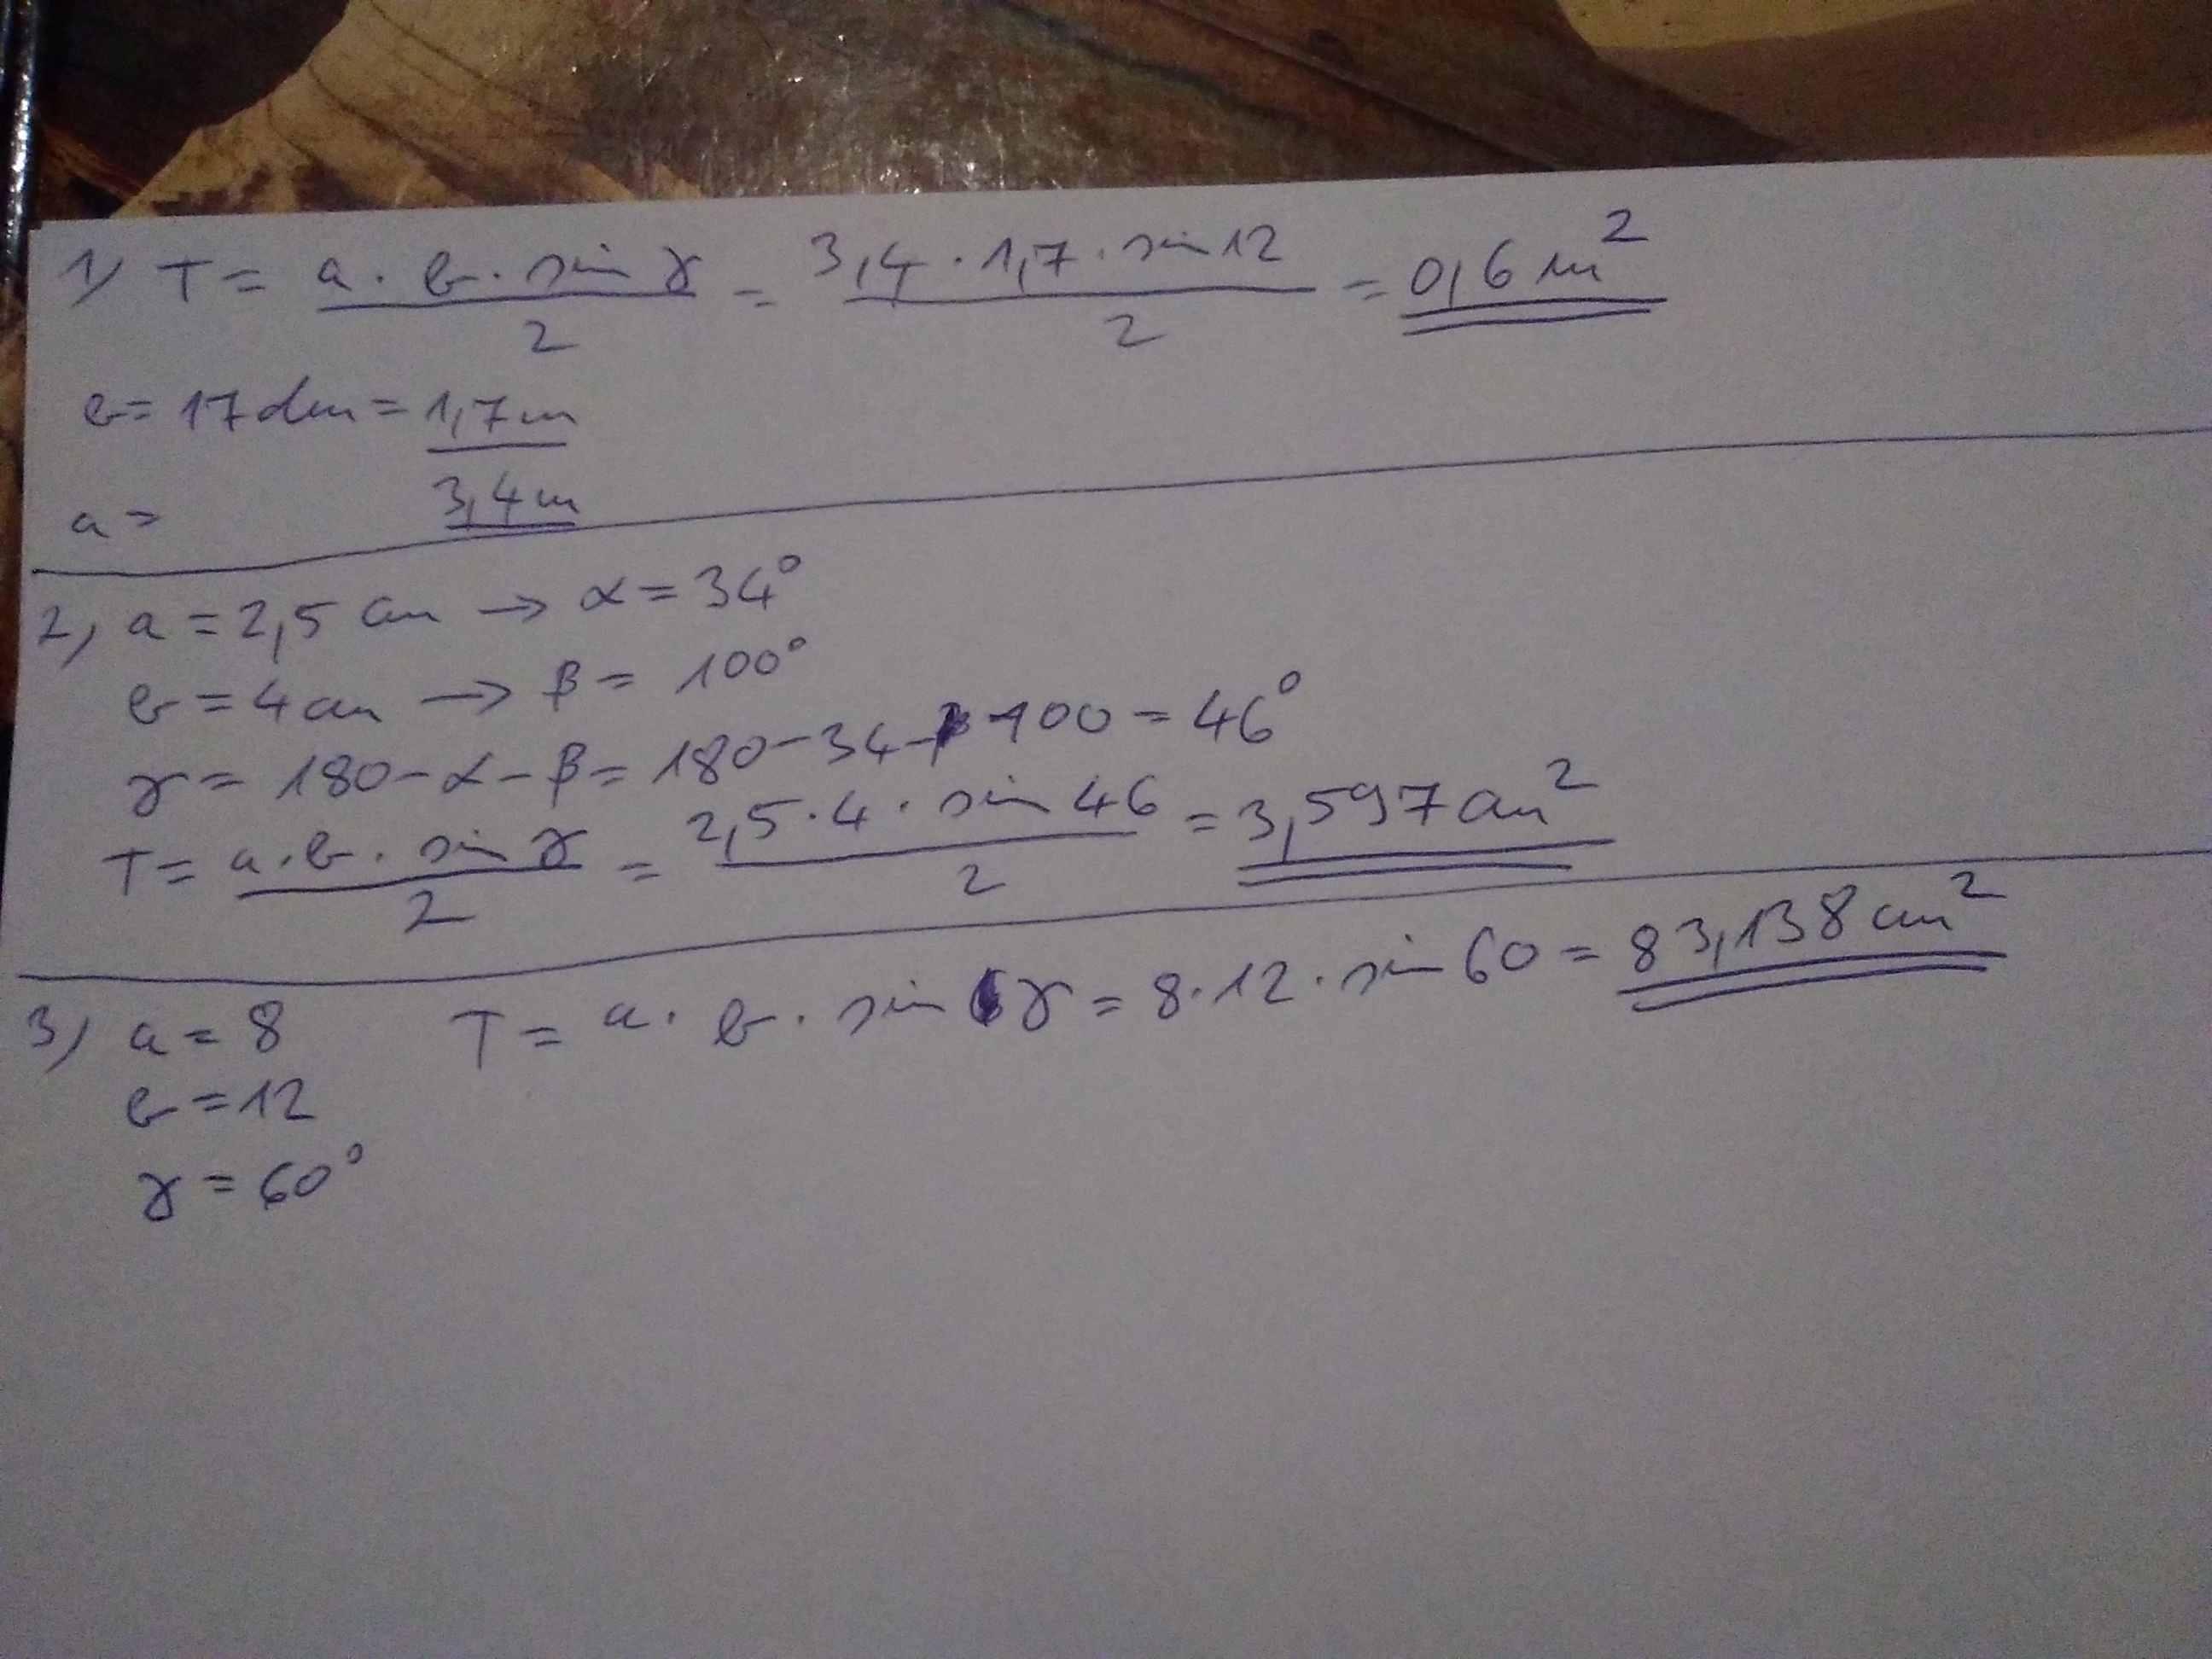 1) T = a · b · sin γ / 2 = 3,4 · 1,7 · sin 12 / 2 = 0,6 m²
b = 17 dm = 1,7 m
a = 3,4 m
2) a = 2,5 cm → α = 34°
b = 4 cm → β = 100°
γ = 180 - α - β = 180 - 34 - 100 = 46°
T = a · b · sin γ / 2 = 2,5 · 4 · sin 46 / 2 = 3,597 cm²
3) a = 8 T = a · b · sin γ = 8 · 12 · sin 60 = 83,138 cm²
b = 12
γ = 60°